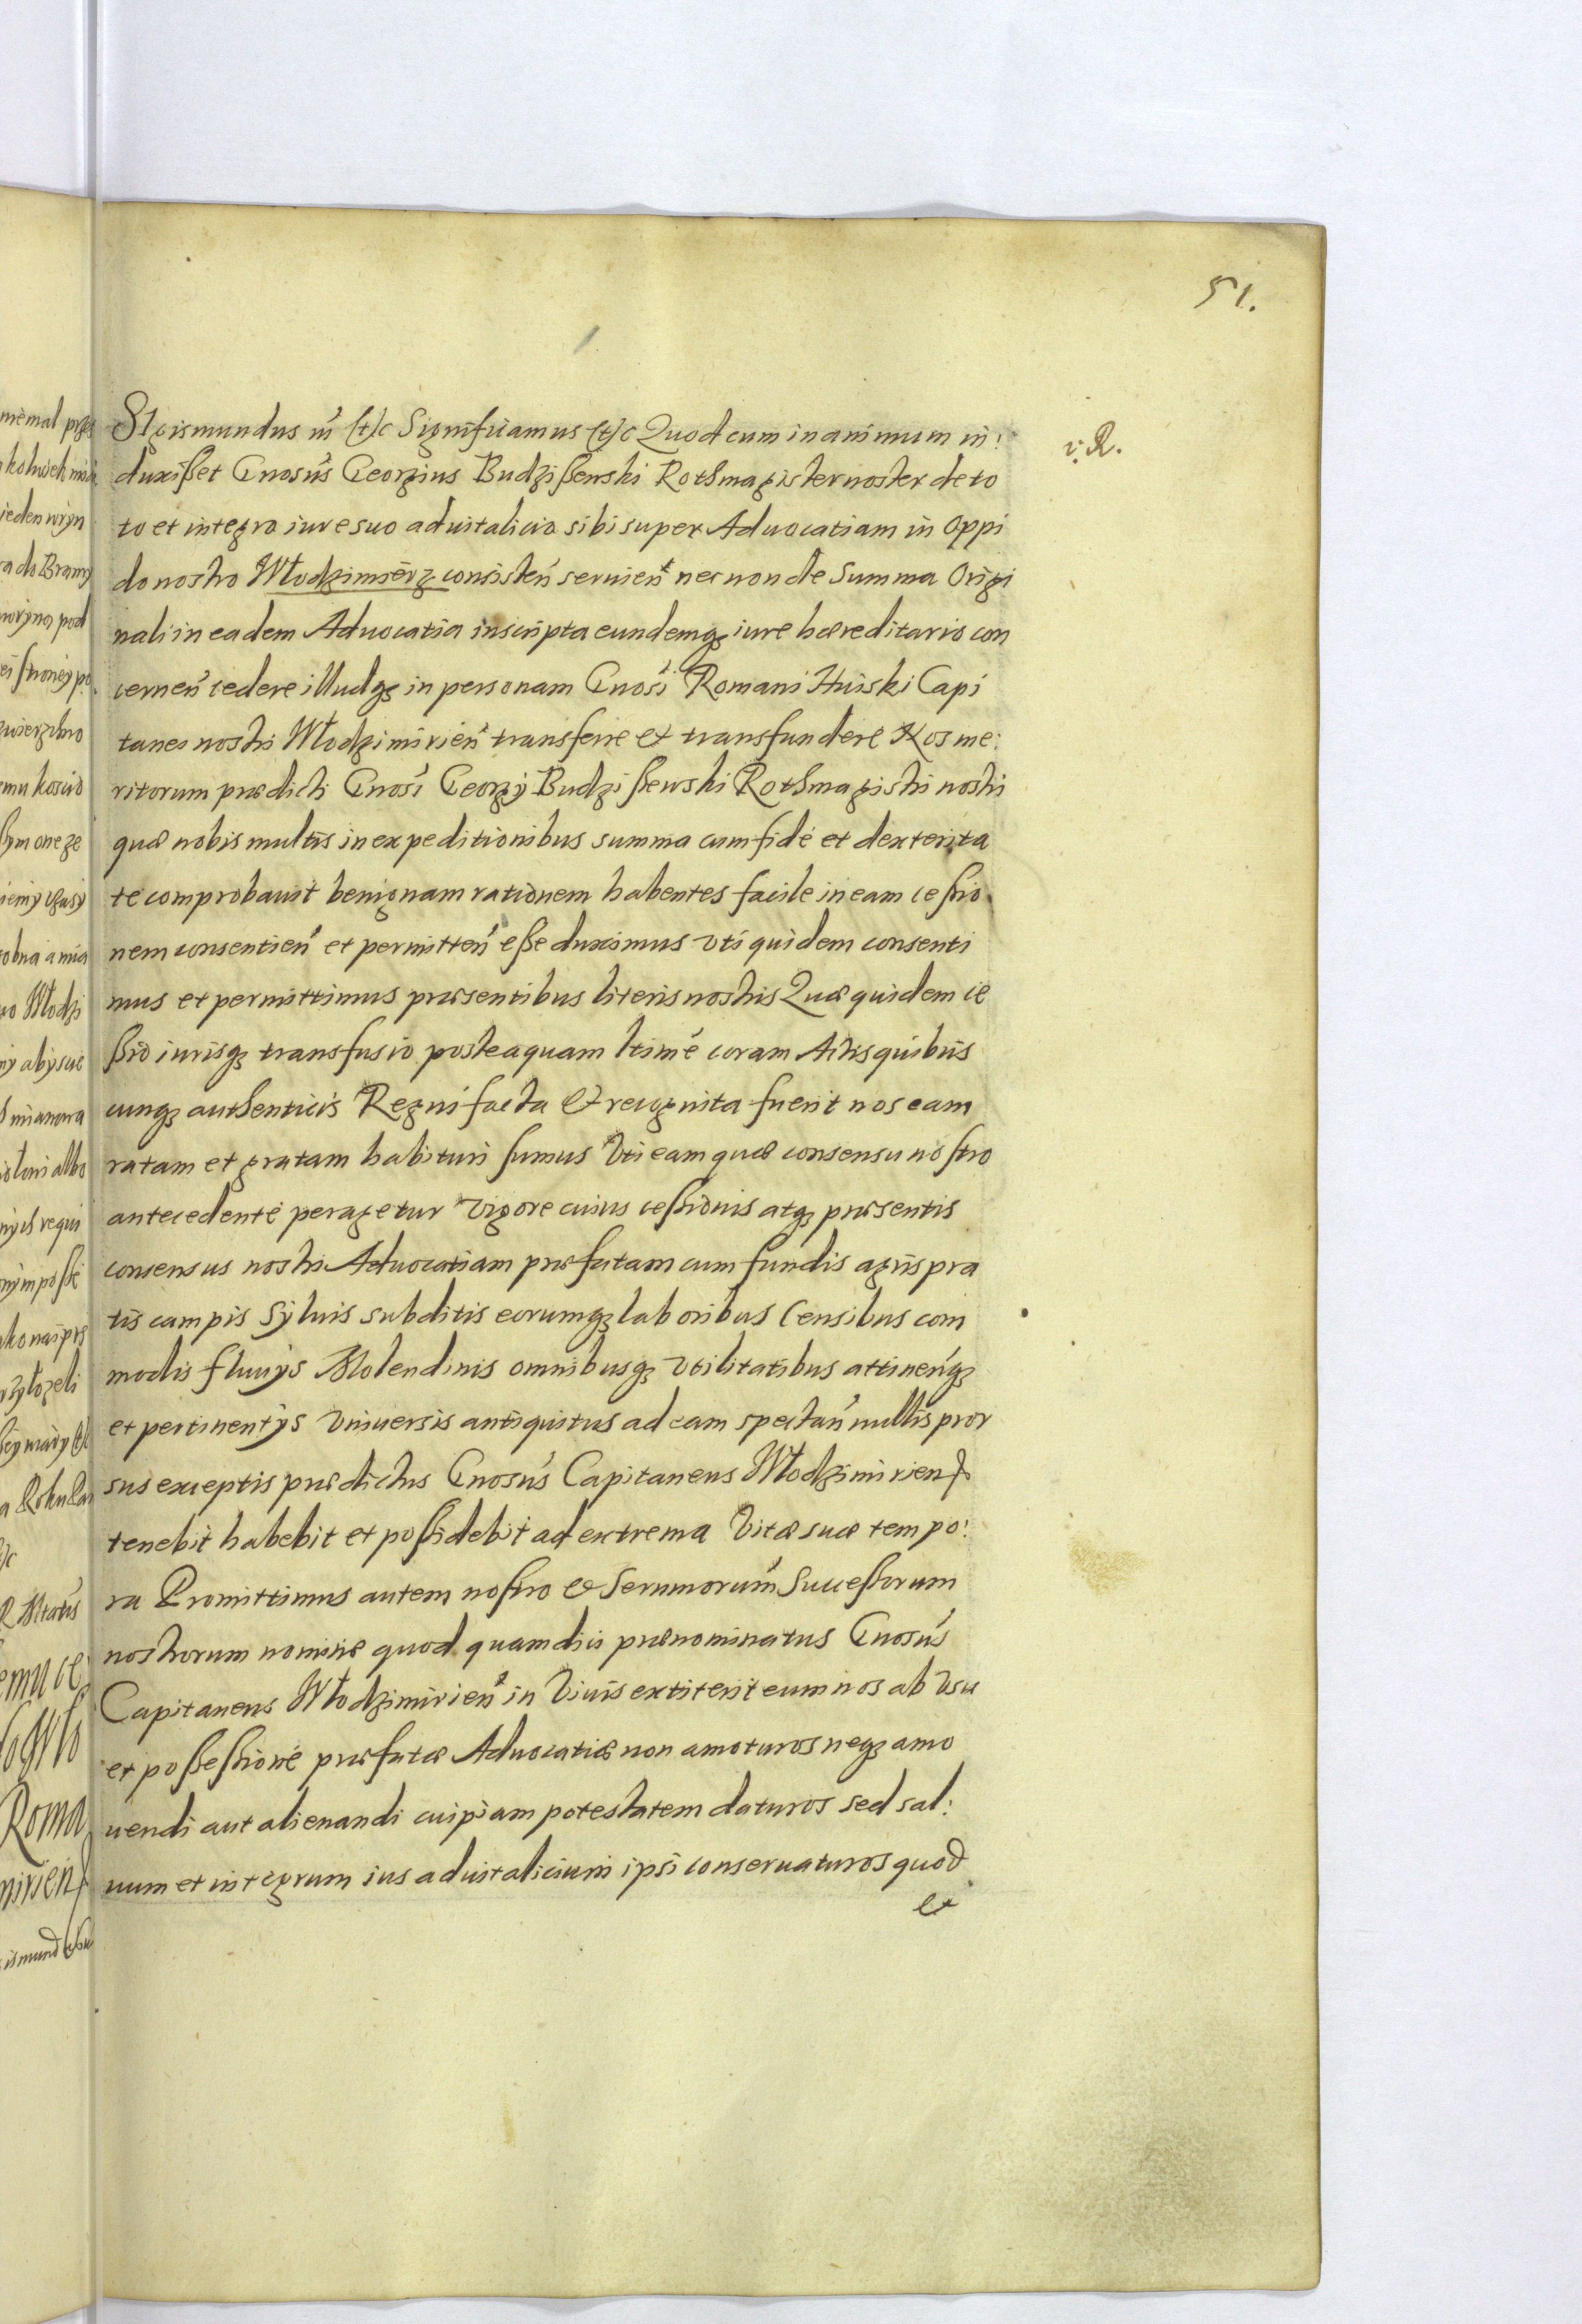 51.
v. R.
Sigismundus III (t)c Significamus (t)c Quod cum in animum in:
duxißet Gnosus Georgius Budzißewski Rothmagister noster de to
to et integro iure suo aduitalicio sibi super Aduocatiam in oppi
do nostro Włodzimierz consisten seruien nec non de Summa Origi
nali in eadem Aduocatia inscripta eundemqꝫ iure hæreditario con
cernen cedere illudqꝫ in personam Gnosi Romani Huiski Capi
tanei nostri Włodzimirien transferre et transfundere Nos me:
ritorum prædicti Gnosi Georgy Budzißewski Rothmagistri nostri
quæ nobis multis in expeditionibus summa cum fide et dexterita
te comprobauit benignam rationem habentes facile in eam ceßio
nem consentien et permitten eße duximus vti quidem consenti
mus et permittimus præsentibus literis nostris Quæ quidem ce
ßio iurisqꝫ transfusio posteaquam ltime coram Actis quibus
cunqꝫ authenticis Regni facta et recognita fuerit nos eam
ratam et gratam habituri sumus Vti eam quæ consensu nostro
antecedente peragetur Vigore cuius ceßionis atqꝫ præsentis
consensus nostri Aduocatiam præfatam cum fundis agris pra
tis campis syluis subditis eorumqꝫ laboribus Censibus com
modis fluuys Molendinis omnibusqꝫ vtilitatibus attinenqꝫ
et pertinentys Vniuersis antiquitus ad eam spectan nullis pror
sus exceptis prædictus Gnosus Capitaneus Włodzimirien
tenebit habebit et poßidebit ad extrema Vitæ suæ tempo:
ra Promittimus autem nostro et Serumorum Succeßorum
nostrorum nomine quod quamdiu prænominatus Gnosus
Capitaneus Włodzimirien in Viuis extiterit eum nos ab Vsu
et poßeßione præfatæ Aduocatiæ non amoturos neqꝫ amo
uendi aut alienandi cuipiam potestatem daturos sed sal:
uum et integrum ius aduitalicium ipsi conseruaturos quod
et